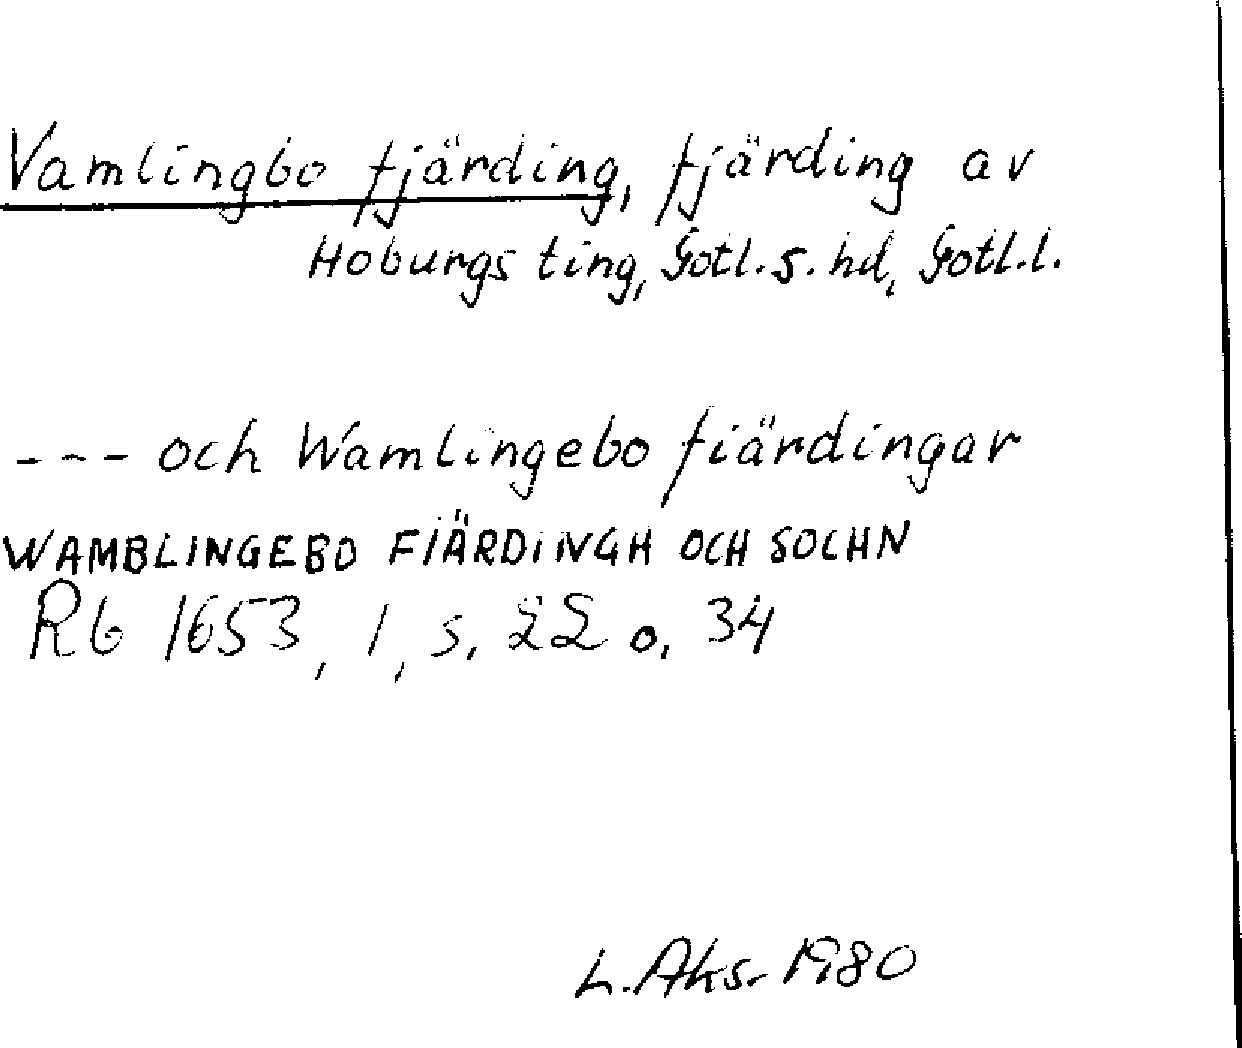 Vamlingbo fjärding, fjärding av
Hoburgs ting, Gotl. s. hd, Gotl. l.
--- och Wamlingebo fiärdingar
WAMBLINGEBO FIÄRDINGH OCH SOCHN
Rb 1653, 1, s. 22 o. 34
L. Aks. 1980